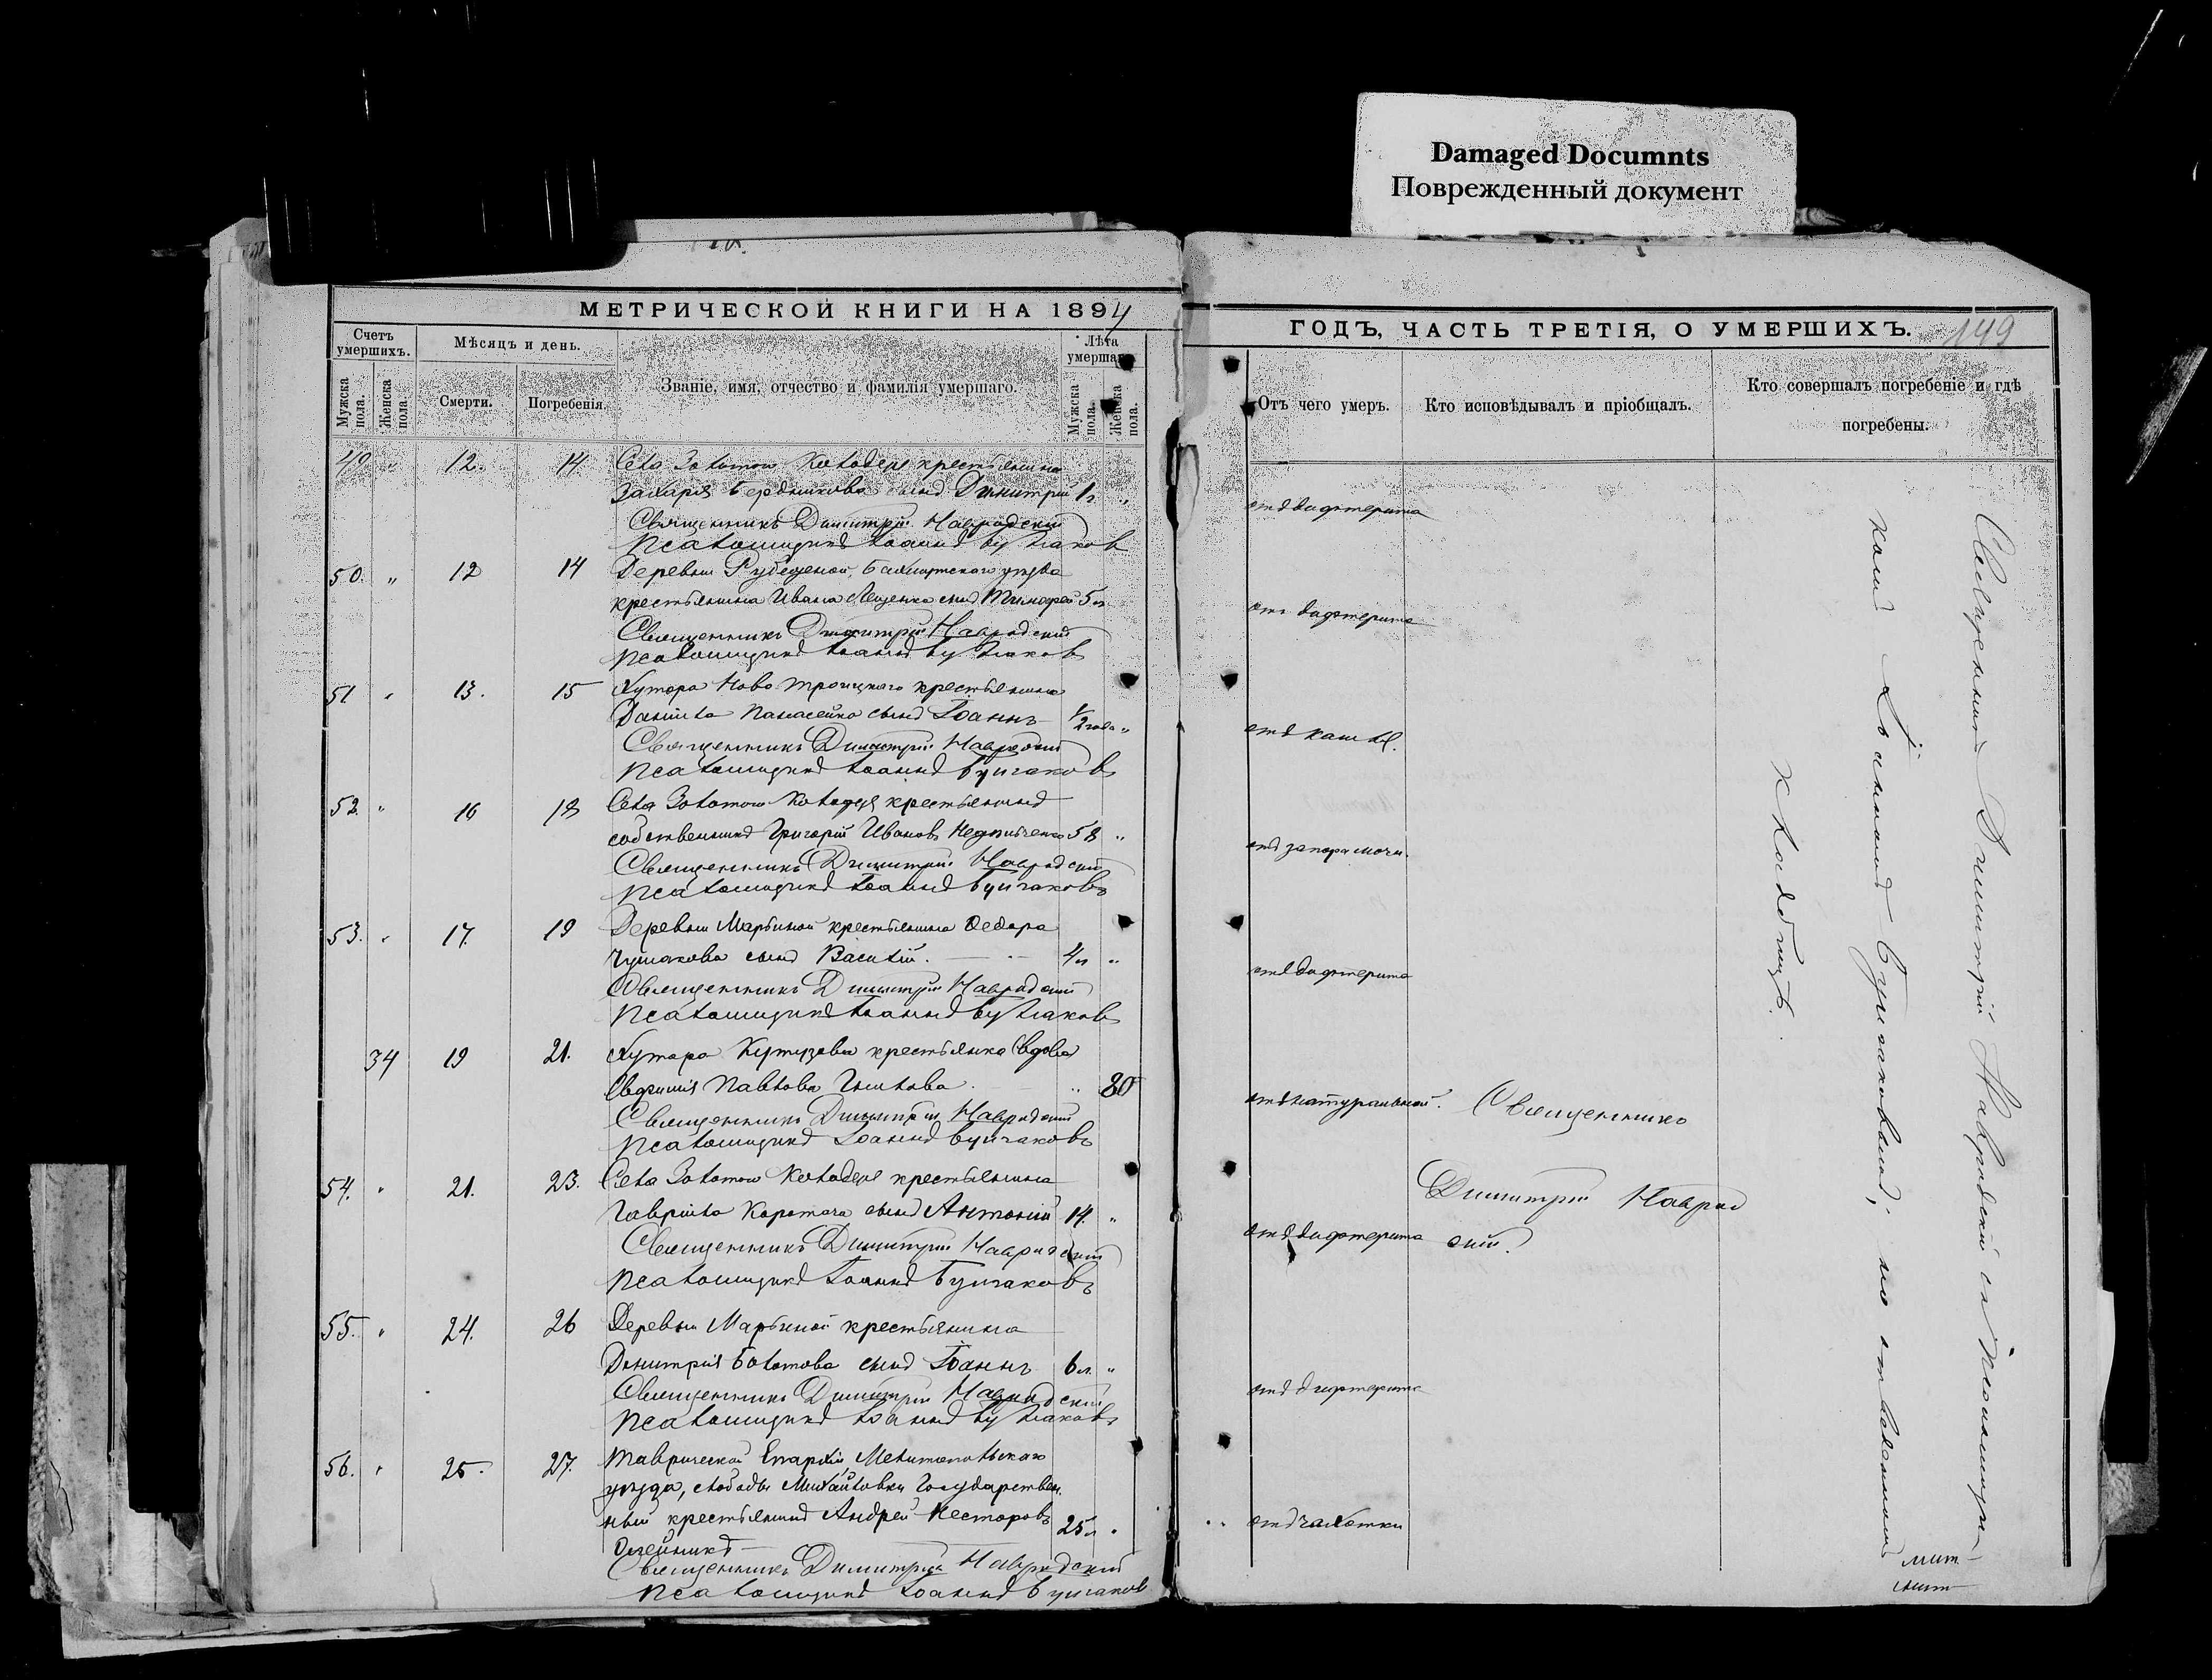 Damaged Documnts
Поврежденный документ
МЕТРИЧЕСКОЙ КНИГИ НА 1894
ГОДЪ, ЧАСТЬ ТРЕТІЯ, О УМЕРШИХЪ. 149
Счетъ умершихъ.
Мужска пола.
Женска пола.
Мѣсяцъ и день.
Смерти.
Погребенія.
Званіе, имя, отчество и фамилія умершаго.
Лѣта умершаго
Мужска пола.
Женска пола.
Отъ чего умеръ.
Кто исповѣдывалъ и пріобщалъ.
Кто совершалъ погребеніе и гдѣ
погребены.
49 " 12. 14 Села Золотого Колодезя крестьянина
Захарія Бердникова сынъ Димитрій 1 г. "
отъ дифтерита
Священникъ Димитрій Навродскій
Псаломщикъ Іоаннъ Булгаковъ
50. " 12 14 Деревни Рубежной, Бахмутскаго уѣзда
крестьянина Ивана Лещенка сынъ Тимофей 5 л.
отъ дифтерита
Священникъ Димитрій Навродскій
Псаломщикъ Іоаннъ Булгаковъ
51 " 13. 15 Хутора Ново Троицкаго крестьянина
Даніила Панасейка сынъ Іоаннъ 1/2 года "
отъ кашля.
Священникъ Димитрій Навродскій
Псаломщикъ Іоаннъ Булгаковъ
52. " 16 18 Села Золотого Колодезя крестьянинъ
собственникъ Григорій Ивановъ 58 "
отъ запора мочи.
Священникъ Димитрій Навродскій
Псаломщикъ Іоаннъ Булгаковъ
53. " 17. 19 Деревни Марьиной крестьянина Ѳедора
Чумакова сынъ Василій. 4 л "
отъ дифтерита
Священникъ Димитрій Навродскій
Псаломщикъ Іоаннъ Булгаковъ
34 19 21. Хутора Кутузовки крестьянка вдова
Евфимія Павлова 80
отъ натуральной. Священникъ
Священникъ Димитрій Навродскій
Псаломщикъ Іоаннъ Булгаковъ
54. " 21. 23. Села Золотого Колодезя крестьянина
Димитрій Наврод
Гавріила Коротача сынъ Антоній 14. "
отъ дифтерита скій.
Священникъ Димитрій Навродскій
Псаломщикъ Іоаннъ Булгаковъ
55. " 24. 26 Деревни Марьиной крестьянина
Димитрія Болотова сынъ Іоаннъ 6 л. "
отъ дифтерита
Священникъ Димитрій Навродскій
Псаломщикъ Іоаннъ Булгаковъ
56. " 25. 27. Таврической Епархіи, Мелитопольскаго
уѣзда, слободы Михайловки Государствен
ный крестьянинъ Андрей Несторовъ 25 л "
отъ чахотки
Олейникъ
Священникъ Димитрій Навродскій
Псаломщикъ Іоаннъ Булгаковъ
Священникъ Димитрій Навродскій съ псаломщи-
комъ Іоанномъ Булгаковымъ, на отведенномъ
кладбищѣ.